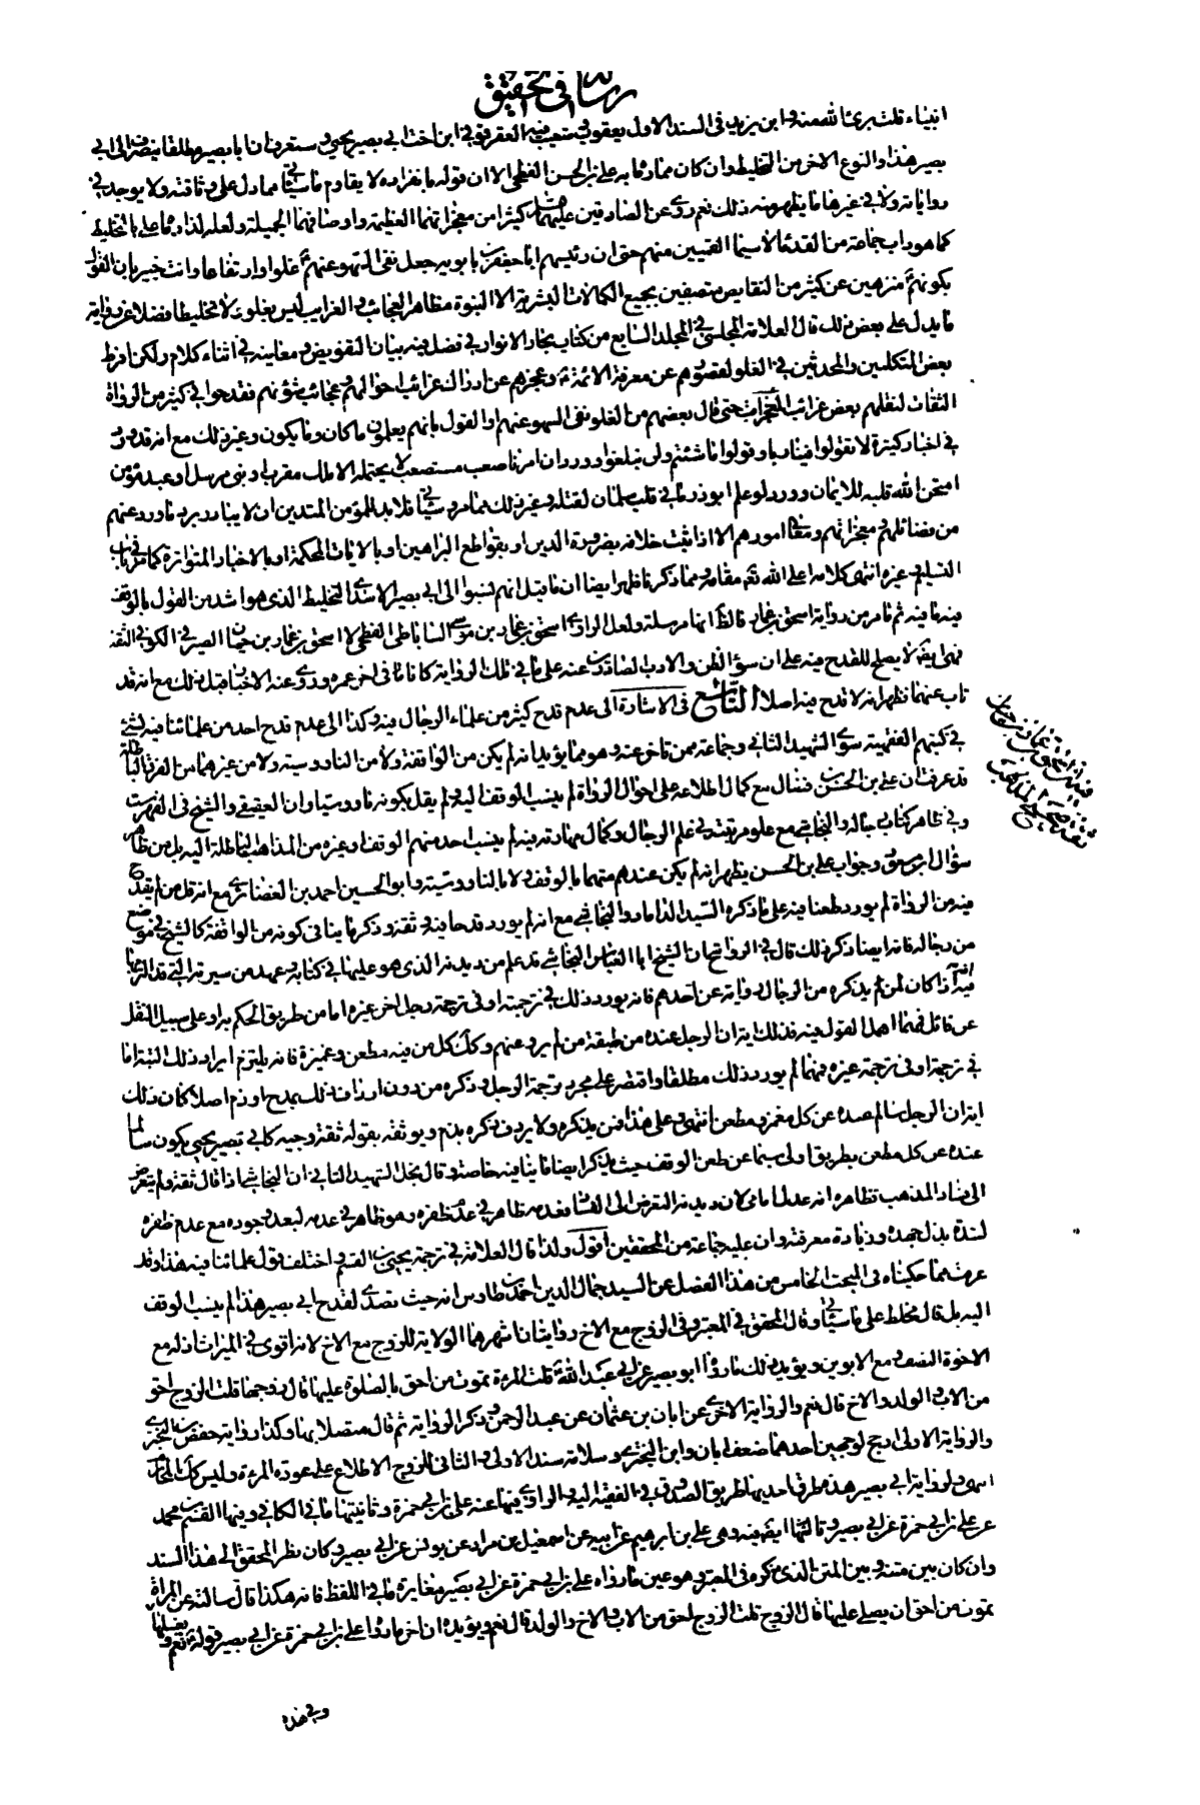 رسالة في تحقيق
انبياء قلت برئ الله منه وابن يزيد في السند الاول يعقوب و شعيب هو العقرقوفي ابن اخت ابي بصير يحيى و ستعرف ان ابا بصير مطلقا ينصرف الى ابي
بصير هذا والنوع الاخر من التخليط وان كان مما رماه به علي بن الحسن الفطحي الا ان قوله بانفراده لا يقاوم ما سيأتي مما دل على وثاقته ولا يوجد في
رواياته ولا في غيرها ما يظهر منه ذلك نعم روى عن الصادقين عليهما السلام كثيرا من معجزاتهما العظيمة واوصافهما الجميلة ولعله لذا رماه علي بالتخليط
كما هو داب جماعة من القدماء لا سيما القميين منهم حتى ان رئيسهم ابا جعفر بن بابويه جعل نفي السهو عنهم غلوا وارتفاعا وانت خبير بان القول
بكونهم منزهين عن كثير من النقايص متصفين بجميع الكمالات البشرية الا النبوة مظاهر العجائب و الغرايب ليس بغلو ولا تخليط فضلا عن رواية
ما يدل على بعض ذلك قال العلامة المجلسي في المجلد السابع من كتاب بحار الانوار في فصل فيه بيان التفويض و معانيه في اثناء كلام ولكن افرط
بعض المتكلمين والمحدثين في الغلو لقصورهم عن معرفة الائمة و عجزهم عن ادراك غرائب احوالهم و عجائب شؤنهم فقدحوا في كثير من الرواة
الثقات لنقلهم بعض غرائب المعجزات حتى قال بعضهم من الغلو نفي السهو عنهم والقول بانهم يعلمون ما كان وما يكون وغير ذلك مع انه قد ورد
في اخبار كثيرة لا تقولوا فينا ربا و قولوا ما شئتم ولن تبلغوا وورد ان امرنا صعب مستصعب لا يحتمله الا ملك مقرب او نبي مرسل او عبد مؤمن
امتحن الله قلبه للايمان وورد لو علم ابو ذر ما في قلب سلمان لقتله وغير ذلك مما مر و سيأتي فلا بد للمؤمن المتدين ان لا يبادر برد ما ورد عنهم
من فضائلهم و معجزاتهم و معالي امورهم الا اذا ثبت خلافه بضرورة الدين او بقواطع البراهين او بالايات المحكمة او بالاخبار المتواترة كما مر في باب
التسليم وغيره انتهى كلامه اعلى الله تعالى مقامه ومما ذكرنا ظهر ايضا ان ما قيل انهم نسبوا الى ابي بصير الاسدي التخليط الذي هو اشد من القول بالوقف
فيه ما فيه ثم ما مر من رواية اسحق بن عمار فالظاهر انها مرسلة ولعل الراوي اسحق بن عمار بن موسى الساباطي الفطحي لا اسحق بن عمار بن حيان الصيرفي الكوفي الثقة
فهي ايضا لا يصلح للقدح فيه على ان سؤ الظن والادب الصادرين عنه على ما في تلك الرواية كانا في اخر عمره وروى عنه الاخبار قبل ذلك مع انه قد
تاب عنهما فظهر انه لا قدح فيه اصلا التاسع في الاشارة الى عدم قدح كثير من علماء الرجال فيه وكذا الى عدم قدح احد من علمائنا فيه بشئ
في كتبهم الفقهية سوى الشهيد الثاني وجماعة ممن تاخر عنه وهو مما يؤيد انه لم يكن من الواقفة ولا من الناووسية ولا من غيرهما من الفرق الباطلة
قد عرفت ان علي بن الحسن بن فضال مع كمال اطلاعه على احوال الرواة لم ينسب الوقف اليه ولم يقل بكونه ناووسيا وان العقيقي والشيخ في الفهرست
وفي ظاهر كتابي رجاله والنجاشي مع علو مرتبته في علم الرجال وكمال مهارته فيه لم ينسب احد منهم الوقف او غيره من المذاهب الباطلة اليه بل من ظاهر
سؤال ابن مسعود وجواب علي بن الحسن يظهر انه لم يكن عندهم متهما بالوقف ولا بالناووسية وابو الحسين احمد بن الغضائري مع انه قل من لم يقدح
فيه من الرواة لم يورد طعنا فيه على ما ذكره السيد الداماد والنجاشي مع انه لم يورد قدحا فيه وثقه وذكر ما ينافي كونه من الواقفة كالشيخ في موضع
من رجاله فانه ايضا ذكر ذلك قال في الرواشح ان الشيخ ابا العباس النجاشي قد علم من ديدنه الذي هو عليه في كتابه وعهد من سيرته التي قد التزمها
فيه انه اذا كان لمن يذكره من الرجال رواية عن احدهم فانه يورد ذلك في ترجمته او في ترجمة رجل اخر غيره اما من طريق الحكم به او على سبيل النقل
عن قائل فمهما اهمل القول فيه فذلك اية ان الرجل عنده من طبقة من لم يرو عنهم وكذلك كل من فيه مطعن وغميزة فانه يلتزم ايراد ذلك البتة اما
في ترجمته او في ترجمة غيره فمهما لم يورد ذلك مطلقا واقتصر على مجرد ترجمة الرجل وذكره من دون ارداف ذلك بمدح او ذم اصلا كان ذلك
اية ان الرجل سالم عنده عن كل مغمز و مطعن انتهى و على هذا فمن يذكره ولا يردف ذكره بذم ويوثقه بقوله ثقة وجيه كابي بصير يحيى يكون سالما
عنده عن كل مطعن بطريق اولى سيما عن طعن الوقف حيث يذكر ايضا ما ينافيه خاصة وقال نجل الشهيد الثاني ان النجاشي اذا قال ثقة ولم يتعرض
الى فساد المذهب فظاهره انه عدل امامي لان ديدنه التعرض الى الفساد فعدمه ظاهر في عدم ظفره وهو ظاهر في عدمه لبعد وجوده مع عدم ظفره
لشدة بذل جهده وزيادة معرفته وان عليه جماعة من المحققين اقول ولذا قال العلامة في ترجمة يحيى بن القسم واختلف قول علمائنا فيه هذا وقد
عرفت مما حكيناه في المبحث الخامس من هذا الفصل عن السيد جمال الدين احمد بن طاوس انه حيث تصدى لقدح ابي بصير هذا لم ينسب الوقف
اليه بل قال مخلط على ما سيأتي وقال المحقق في المعتبر وفي الزوج مع الاخ روايتان اشهرهما الولاية للزوج مع الاخ لانه اقوى في الميراث اذ له مع
الاخوة النصف و مع الابوين ويؤيد ذلك ما رواه ابو بصير عن ابي عبد الله قلت المرئة تموت من احق بالصلوة عليها قال زوجها قلت الزوج احق
من الاب و الولد و الاخ قال نعم والرواية الاخرى عن ابان بن عثمان عن عبد الرحمن و ذكر الرواية ثم قال متصلا بها وكذا رواية حفص بن البختري
والرواية الاولى ارجح لوجهين احدهما ضعف ابان وابن البختري و سلامة سند الاولى والثاني للزوج الاطلاع على عورة المرئة وليس كذلك المحارم
انتهى ولرواية ابي بصير هذه طرق احديها طريق الصدوق في الفقيه اليه والراوي فيها عنه علي بن ابي حمزة و ثانيتها ما في الكافي وفيها القسم بن محمد
عن علي بن ابي حمزة عن ابي بصير وثالثها ايضا فيه وهي علي بن ابرهيم عن ابيه عن اسمعيل بن مرار عن يونس عن ابي بصير وكان نظر المحقق الى هذا السند
وان كان بين متنه وبين المتن الذي ذكره في المعتبر وهو عين ما رواه علي بن ابي حمزة عن ابي بصير مغايرة ما في اللفظ فانه هكذا قال سالته عن المراة
تموت من احق ان يصلي عليها قال الزوج قلت الزوج احق من الاب والاخ والولد قال نعم ويؤيده ان اخر ما رواه علي بن ابي حمزة عن ابي بصير قوله نعم و يغسلها
وفي هذه